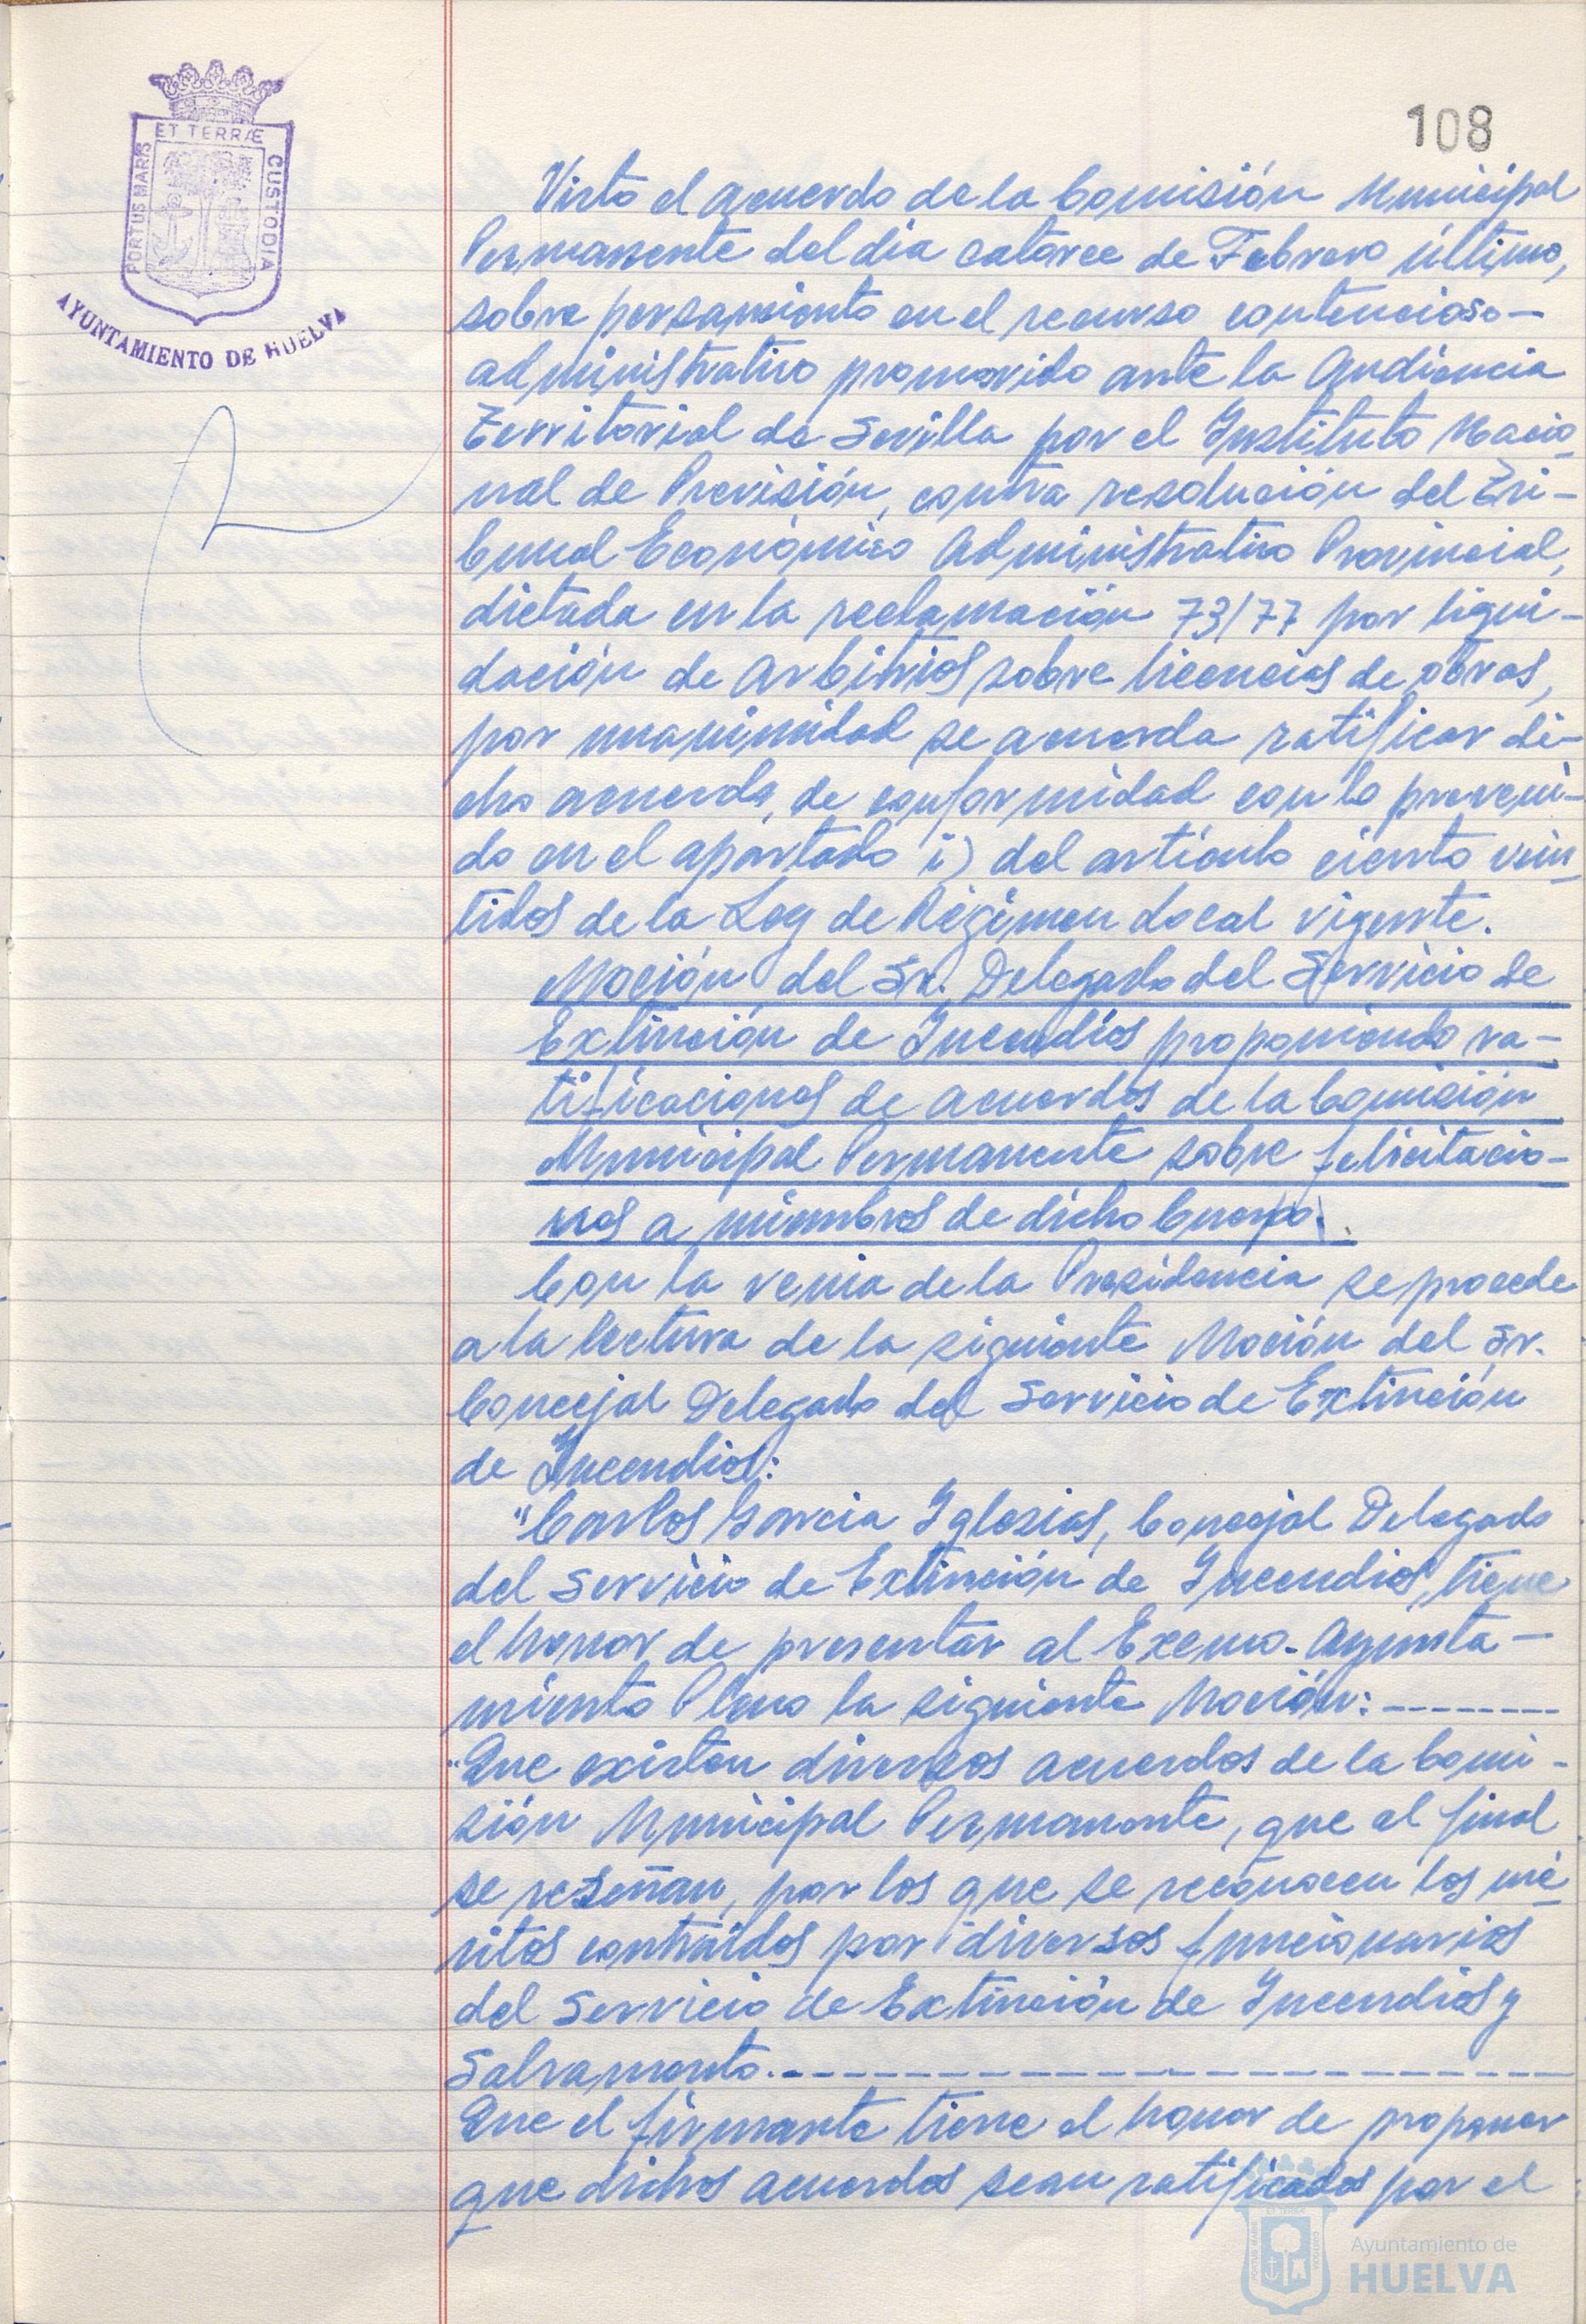 108
ET TERRÆ
PORTUS MARIS
CUSTODIA
AYUNTAMIENTO DE HUELVA
Visto el acuerdo de la Comisión Municipal
Permanente del dia catorce de Febrero último,
sobre personamiento en el recurso contencioso-
administrativo promovido ante la Audiencia
Territorial de Sevilla por el Instituto Nacio-
nal de Previsión, contra resolución del Tri-
bunal Económico Administrativo Provincial,
dictada en la reclamación 73/77 por liqui-
dación de arbitrios sobre licencias de obras,
por unanimidad se acuerda ratificar di-
cho acuerdo, de conformidad con lo preveni-
do en el apartado i) del artículo ciento vein-
tidos de la Ley de Régimen Local vigente.
Moción del Sr. Delegado del Servicio de
Extinción de Incendios proponiendo ra-
tificaciones de acuerdos de la Comisión
Municipal Permanente sobre felicitacio-
nes a miembros de dicho Cuerpo.
Con la venia de la Presidencia se procede
a la lectura de la siguiente Moción del Sr.
Concejal Delegado del Servicio de Extinción
de Incendios:
"Carlos Garcia Iglesias, Concejal Delegado
del Servicio de Extinción de Incendios, tiene
el honor de presentar al Excmo. Ayunta-
miento Pleno la siguiente Moción: --------
"Que existen diversos acuerdos de la Comi-
sión Municipal Permanente, que al final
se reseñan, por los que se reconocen los mé-
ritos contraidos por diversos funcionarios
del Servicio de Extinción de Incendios y
Salvamento.--------------------
Que el firmante tiene el honor de proponer
que dichos acuerdos sean ratificados por el
Ayuntamiento de
HUELVA